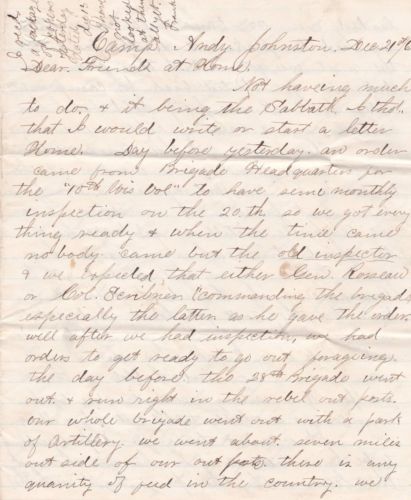 Camp Andy Johnston. Dec 21st
Dear Friends at Home.
Not haveing much
to do, & it being the Sabbath I thot.
that I would write or start a letter
Home. Day before yesterday an order
came from Brigade Headquarters for
the "10th Wis Vol" to have semi monthly
inspection on the 20.th so we got every
thing ready & when the time came
nobody came but the old inspector
& we expected that either Gen. Roseau
or Col. Scribner "commanding the brigade
especially the latter. as he gave the order.
well after we had inspection, we had
orders to get ready to go out forageing.
the day before the 28th Brigade went
out & run right in the rebel out posts.
our whole brigade went out with a park
of Artillery. we went about seven miles
out side of our out posts. there is any
quantity of feed in the country. we